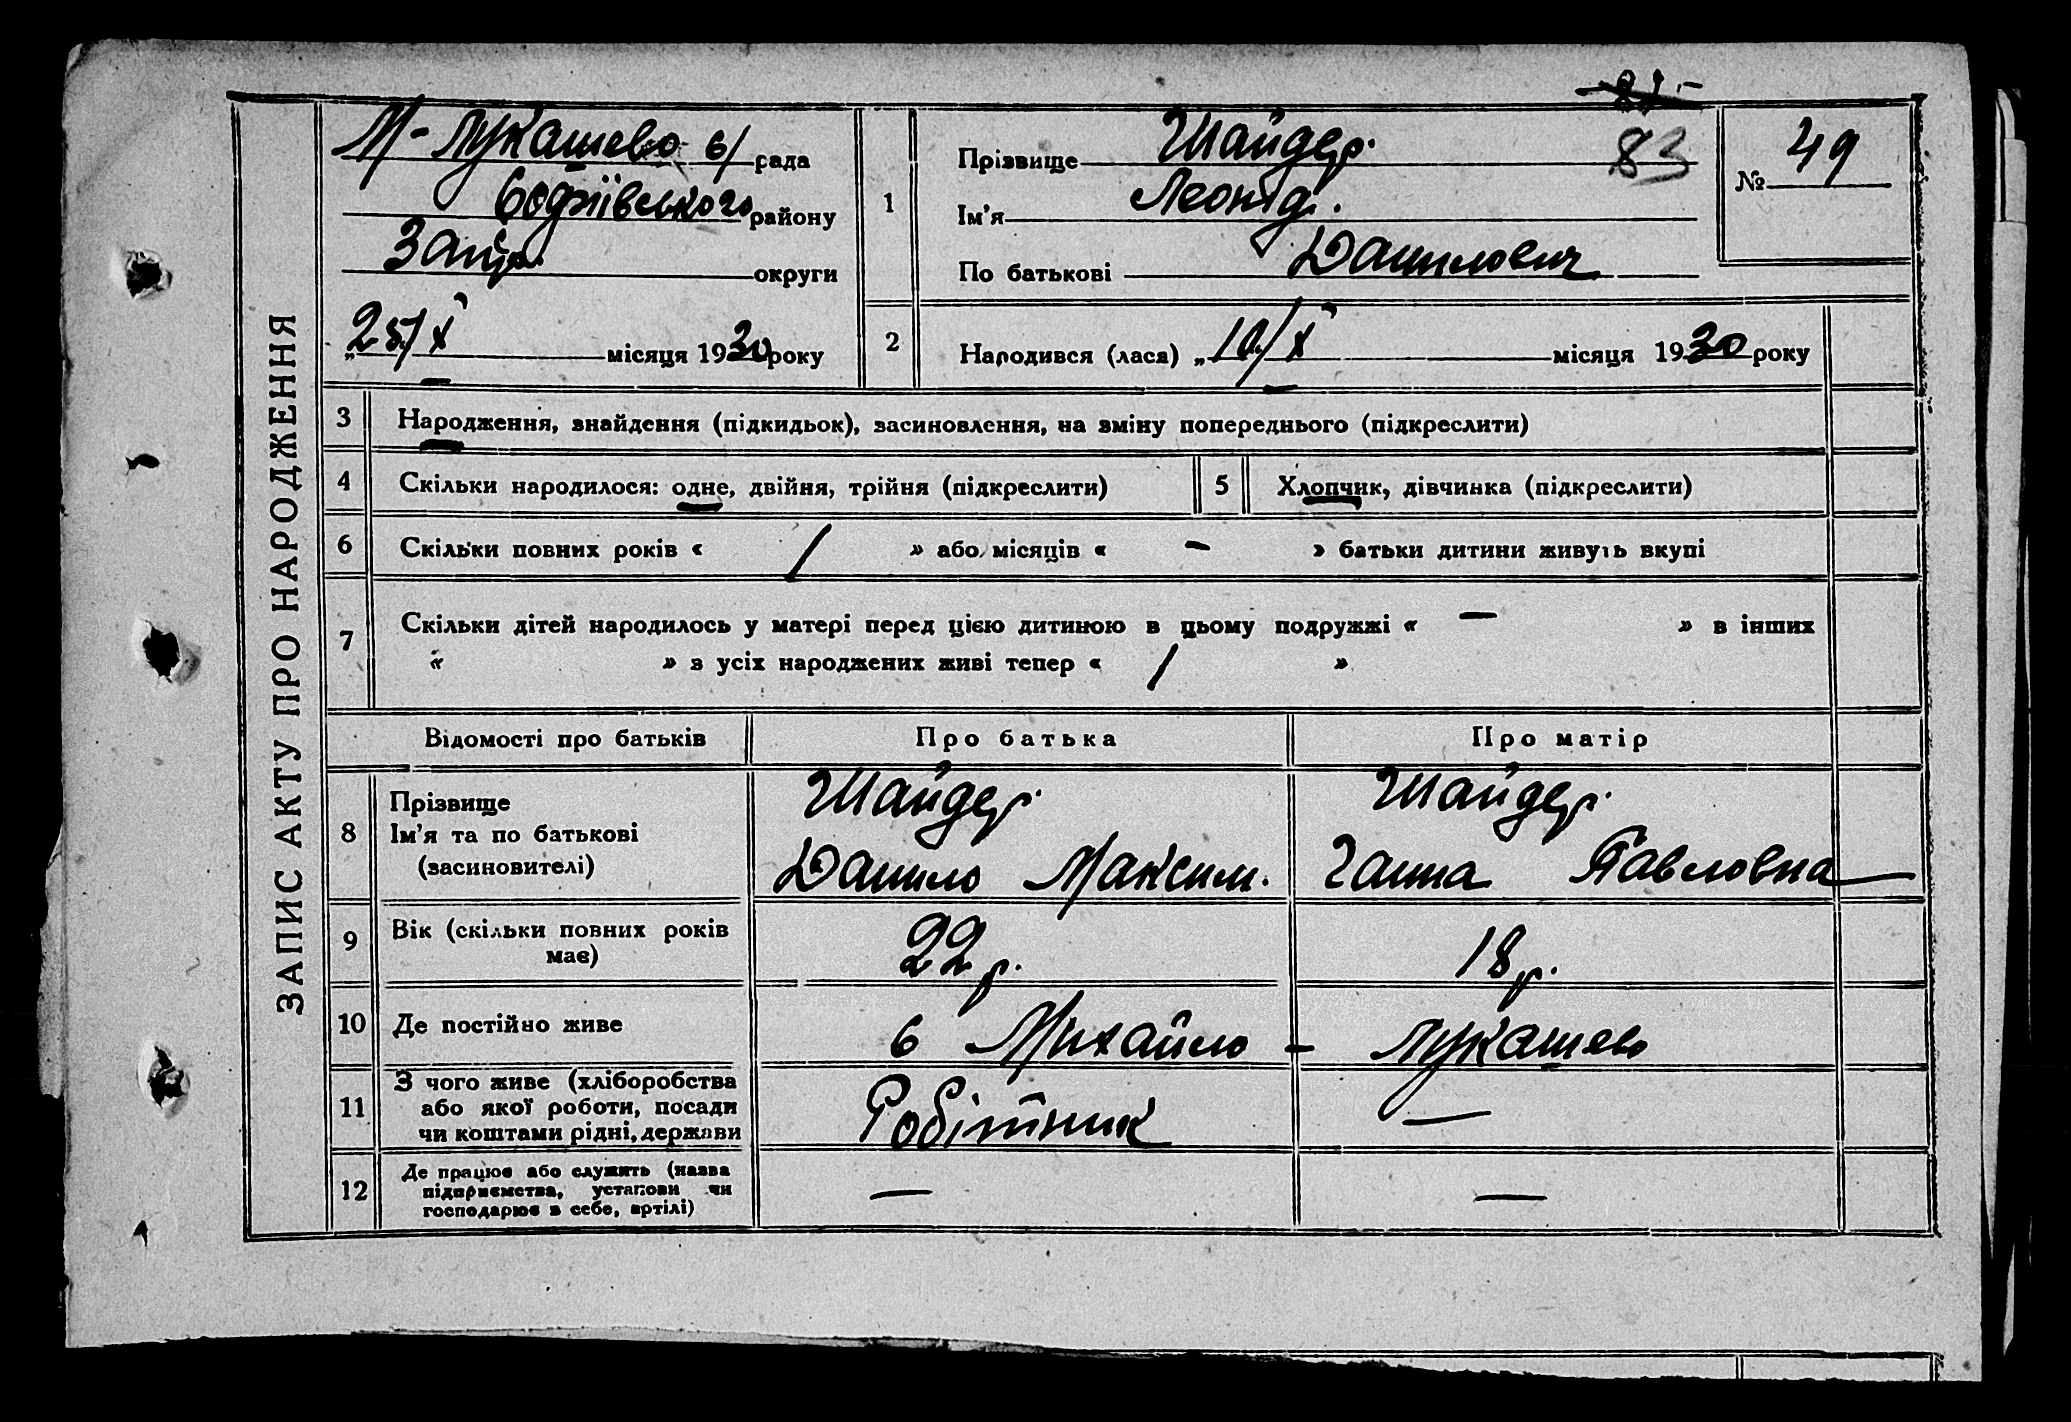 ЗАПИС АКТУ ПРО НАРОДЖЕННЯ
М-Лукашево с/рада
Софіївського району
Запор. округи
„25/X місяця 1930 року
83
№ 49
1
Прізвище Шайдер.
Ім'я Леонід.
По батькові Данилович
2
Народився (лася) „10/X місяця 1930 року
3 Народження, знайдення (підкидьок), засиновлення, на зміну попереднього (підкреслити)
4 Скільки народилося: одне, двійня, трійня (підкреслити)
5 Хлопчик, дівчинка (підкреслити)
6 Скільки повних років « / » або місяців « – » батьки дитини живуть вкупі
7 Скільки дітей народилось у матері перед цією дитиною в цьому подружжі « – » в інших
« » з усіх народжених живі тепер « / »
Відомості про батьків Про батька Про матір
8 Прізвище
Ім'я та по батькові
(засиновителі)
Шайдер.
Данило Максим.
Шайдер.
Ганна Павловна
9 Вік (скільки повних років
має)
22 р.
18 р.
10 Де постійно живе
с Михайло - Лукашево
11 З чого живе (хліборобства
або якої роботи, посади
чи коштами рідні, держави
Робітник
—
12 Де працює або служить (назва
підприємства, установи чи
господарює в себе, артілі)
—
—